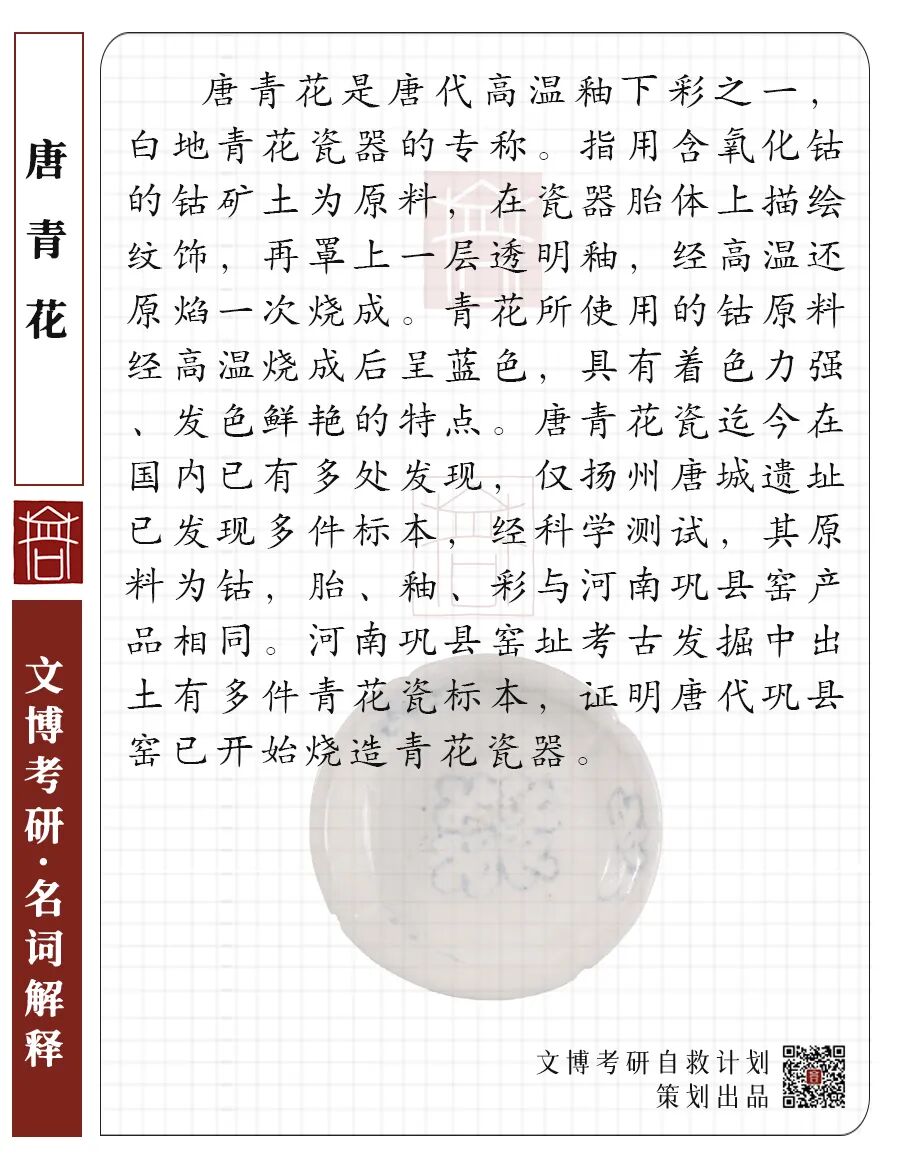 唐青花
文博考研·名词解释
唐青花是唐代高温釉下彩之一，
白地青花瓷器的专称。指用含氧化钴
的钴矿土为原料，在瓷器胎体上描绘
纹饰，再罩上一层透明釉，经高温还
原焰一次烧成。青花所使用的钴原料
经高温烧成后呈蓝色，具有着色力强
、发色鲜艳的特点。唐青花瓷迄今在
国内已有多处发现，仅扬州唐城遗址
已发现多件标本，经科学测试，其原
料为钴，胎、釉、彩与河南巩县窑产
品相同。河南巩县窑址考古发掘中出
土有多件青花瓷标本，证明唐代巩县
窑已开始烧造青花瓷器。
文博考研自救计划
策划出品